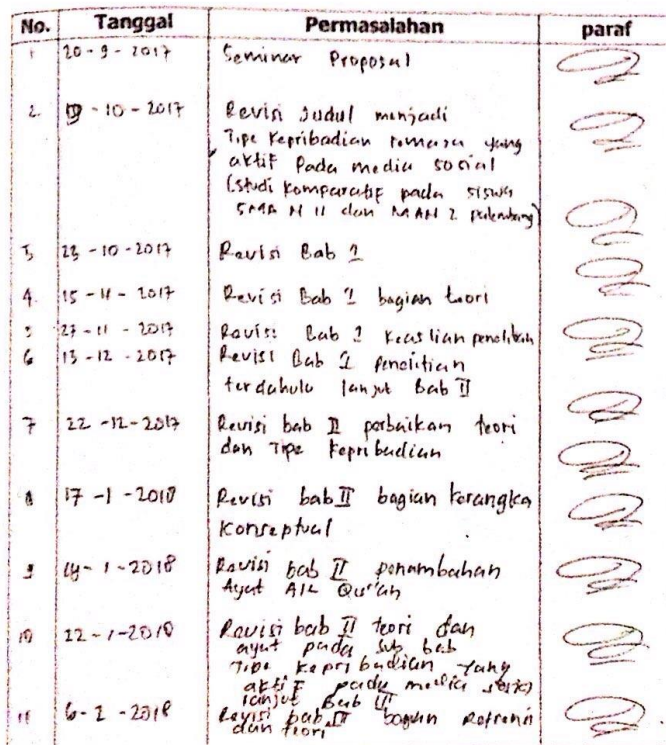 No. Tanggal Permasalahan paraf
1 20-9-2017 Seminar Proposal
2. 19-10-2017 Revisi Judul menjadi
Tipe Kepribadian remaja yang
aktif Pada media sosial
(studi komparatif pada siswa
SMA N 11 dan MAN 2 palembang)
3 23-10-2017 Revisi Bab 1
4. 15-11-2017 Revisi Bab 1 bagian teori
5 27-11-2017 Revisi Bab 1 keaslian penelitian
6 13-12-2017 Revisi Bab 1 penelitian
terdahulu lanjut Bab II
7 22-12-2017 Revisi bab II perbaikan teori
dan Tipe Kepribadian
8 17-1-2018 Revisi bab II bagian kerangka
Konseptual
9 -1-2018 Revisi bab II penambahan
Ayat Alk Qur'an
10 22-1-2018 Revisi bab II teori dan
ayat pada sub bab
Tipe Kepribadian Yang
aktif pada media sosial
lanjut Bab III
11 6-2-2018 Revisi bab bagian
dan teori